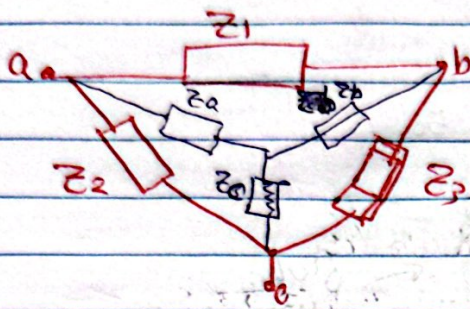 Z1
a
b
Za
Zb
Z2
Zc
Z3
c